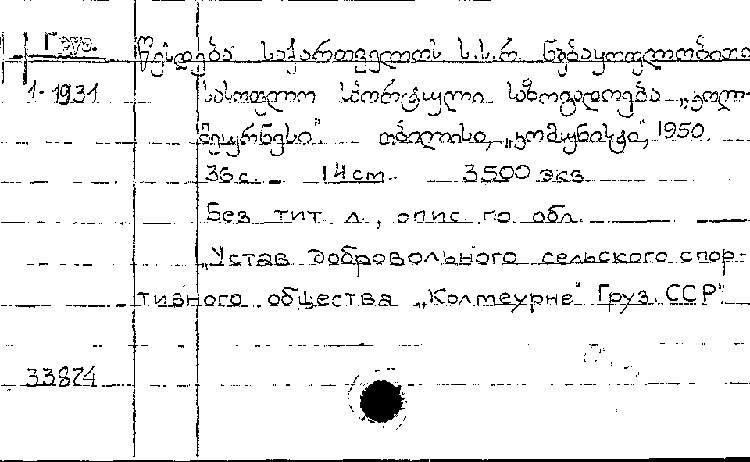 Груз.
წესდება საქართველოს ს.ს.რ. ნებაყოფლობითი
1-1931
სასოფლო სპორტული საზოგადოება „კოლ-
მეურნესი". თბილისი, „კომუნისტი", 1950.
36 с. 14 cm. 3500 экз
Без тит л., опис по обл.
„Устав добровольного сельского спор-
тивного общества „Колмеурне" Груз. ССР"
33874